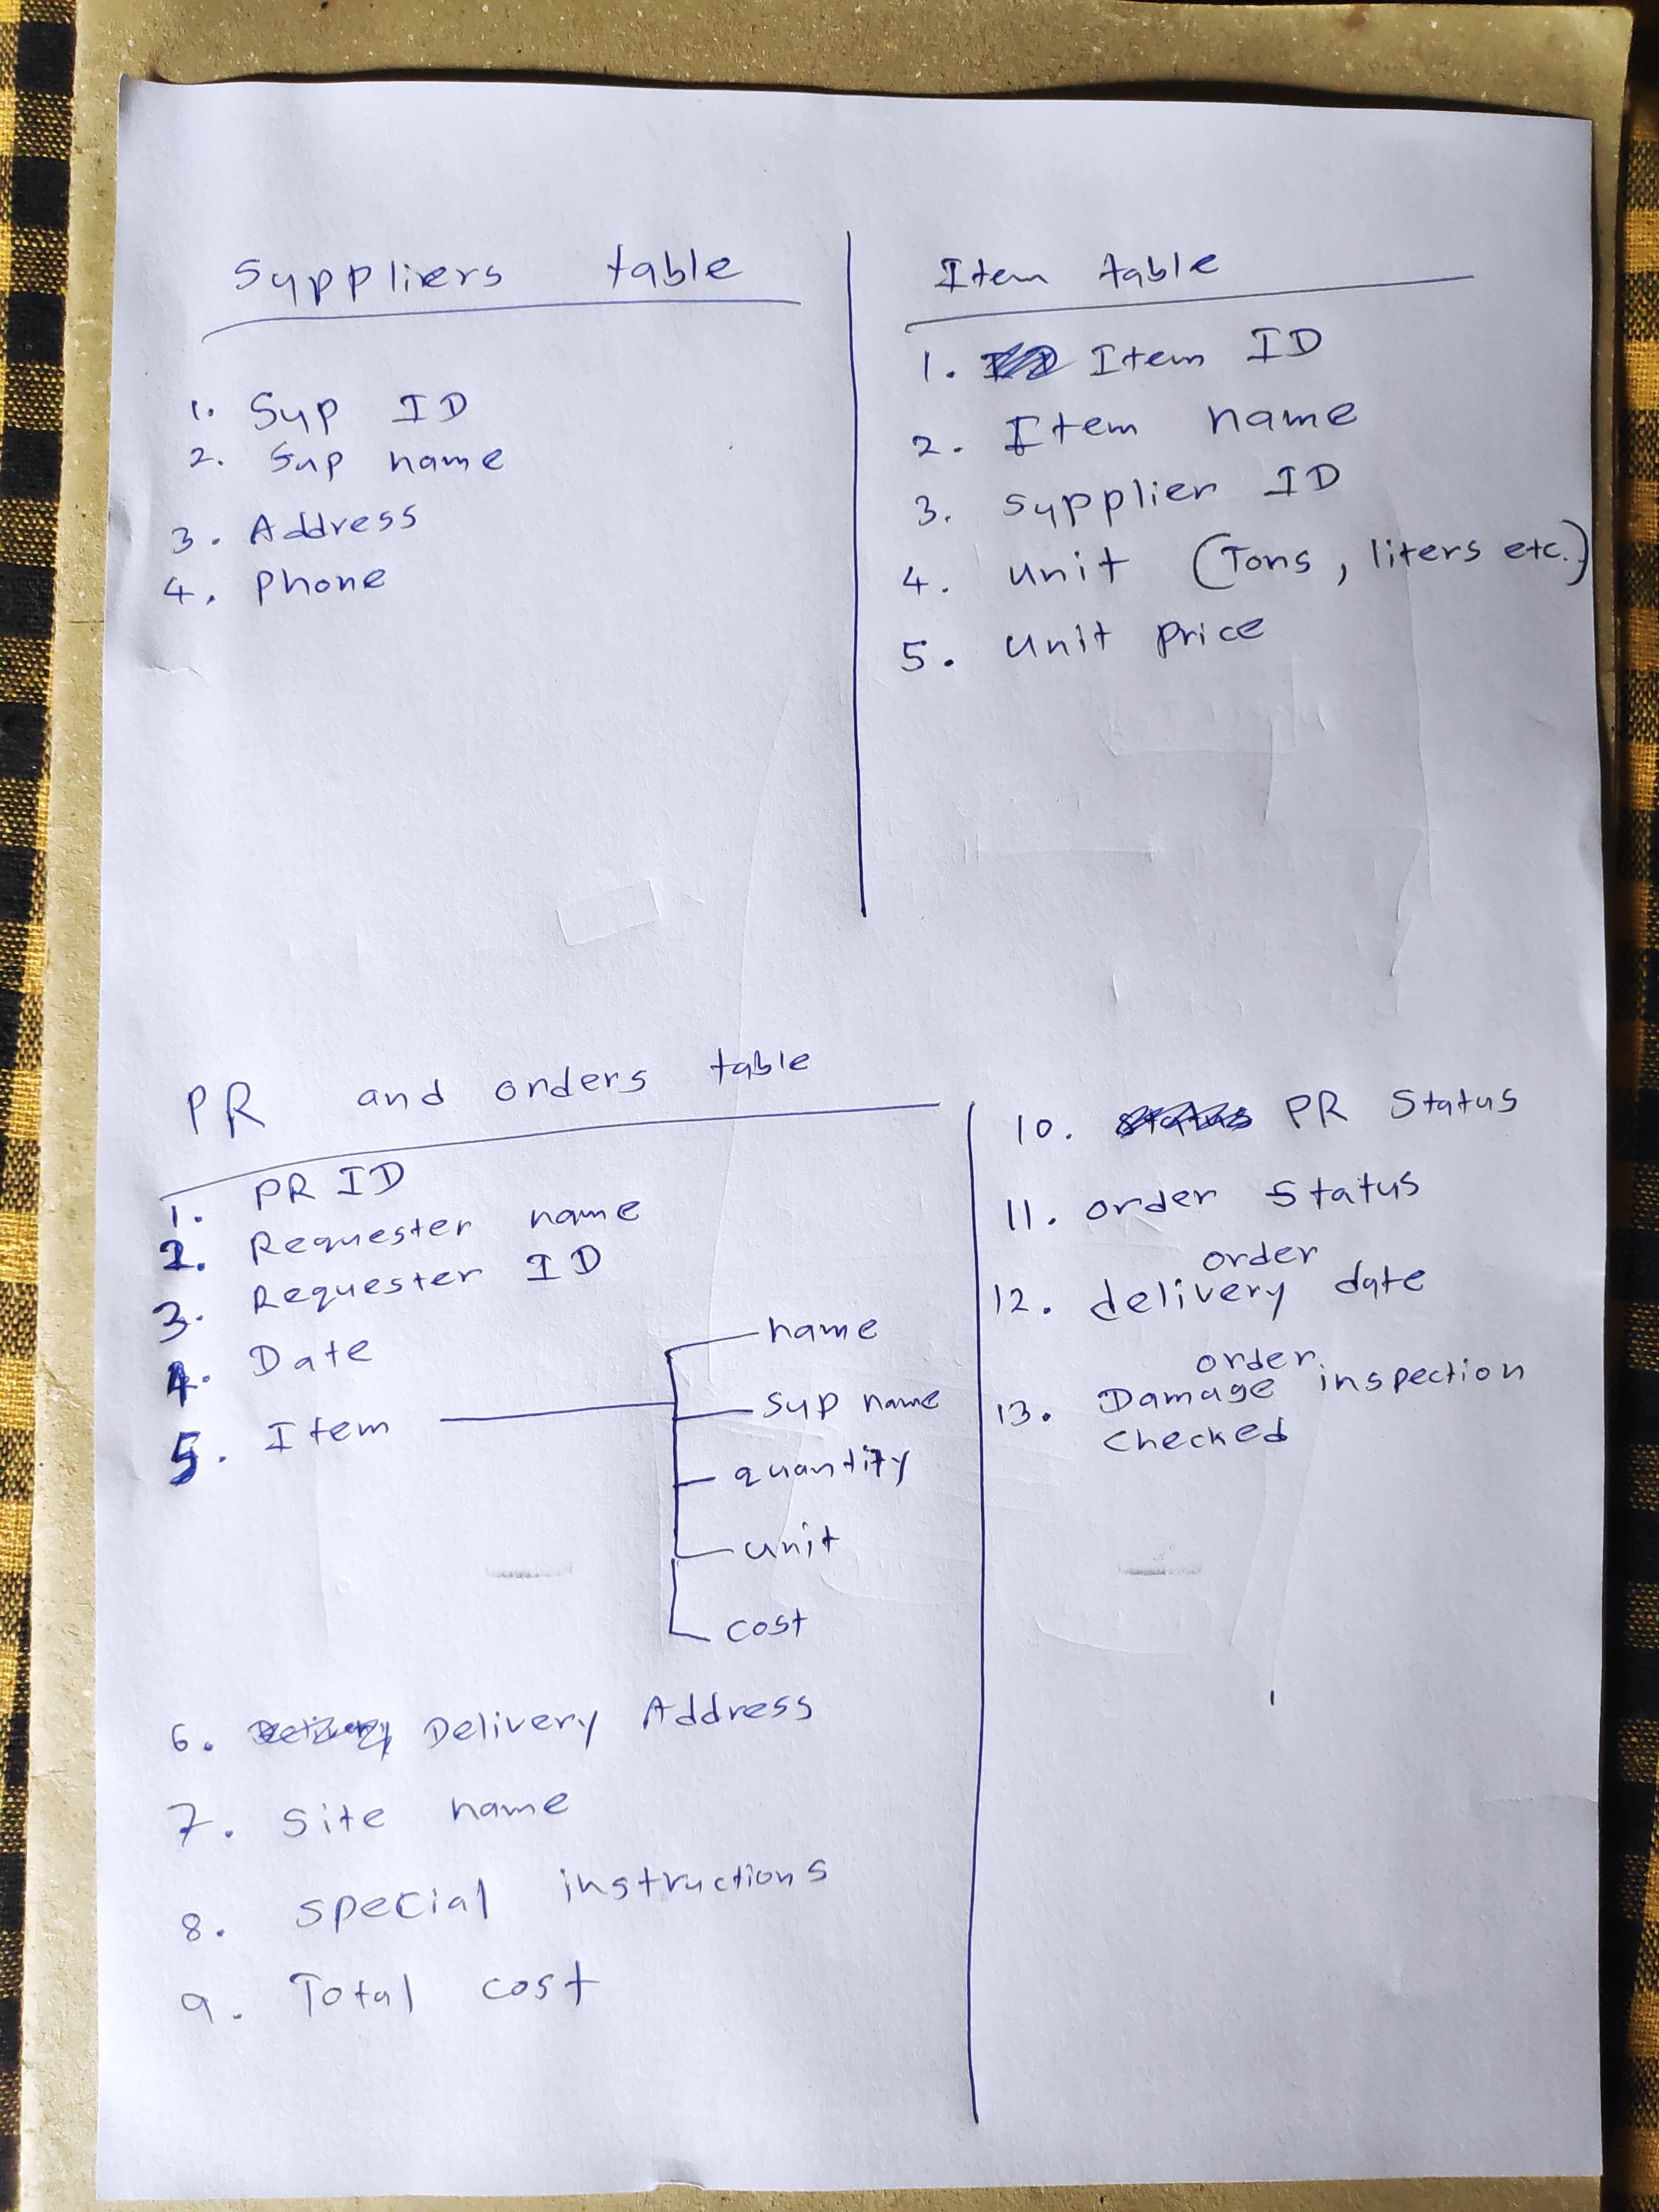 Suppliers table
1. Sup ID
2. Sup name
3. Address
4. Phone
Item table
1. Item ID
2. Item name
3. Supplier ID
4. Unit (Tons, liters etc.)
5. Unit price
PR and orders table
1. PR ID
2. Requester name
3. Requester ID
4. Date
5. Item
name
sup name
quantity
unit
cost
6. Delivery Address
7. Site name
8. Special instructions
9. Total cost
10. PR Status
11. order status
order
12. delivery date
order
13. Damage inspection
Checked